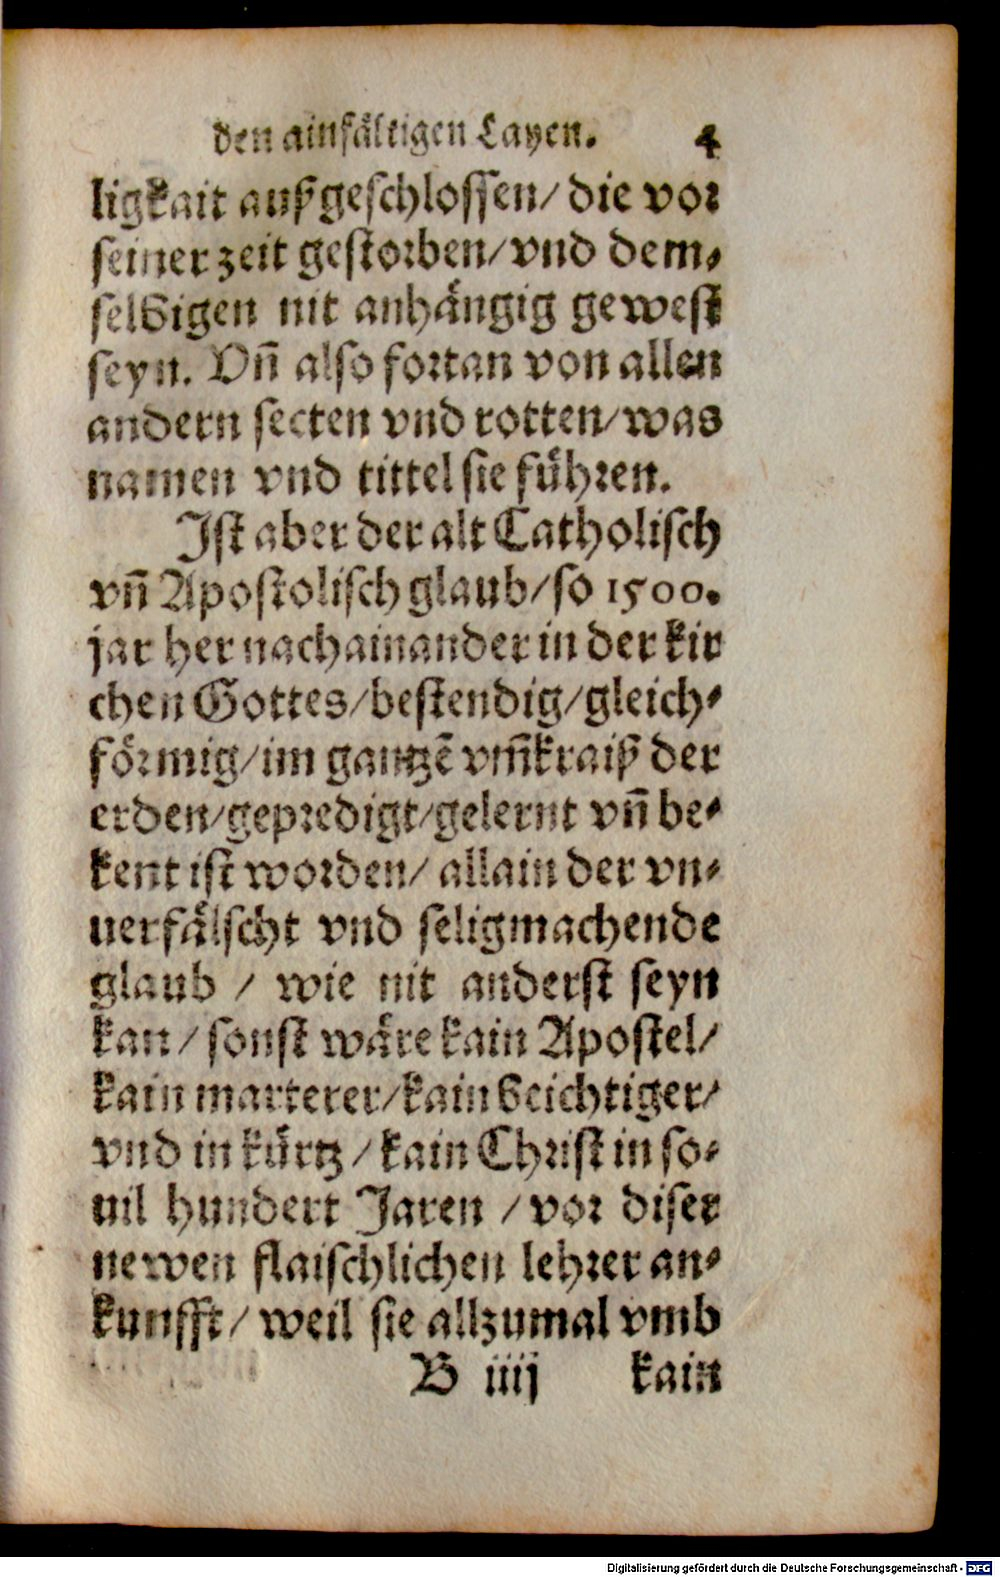 den ainfältigen Layen. 4
ligkait außgeschlossen/ die vor
seiner zeit gestorben/ vnd dem-
selbigen nit anhängig gewest
seyn. Vn̄ also fortan von allen
andern secten vnd rotten/ was
namen vnd tittel sie führen.
Ist aber der alt Catholisch
vn̄ Apostolisch glaub/ so 1500.
jar her nach ainander in der kir
chen Gottes/ bestendig/ gleich-
förmig/ im gantzē vm̄kraiß der
erden/ gepredigt/ gelernt vn̄ be-
kent ist worden/ allain der vn-
uerfälscht vnd seligmachende
glaub / wie nit anderst seyn
kan / sonst wäre kain Apostel/
kain marterer/ kain beichtiger/
vnd in kürtz / kain Christ in so-
uil hundert Jaren / vor diser
newen flaischlichen lehrer an-
kunfft/ weil sie allzumal vmb
B iiij kain
Digitalisierung gefördert durch die Deutsche Forschungsgemeinschaft - DFG